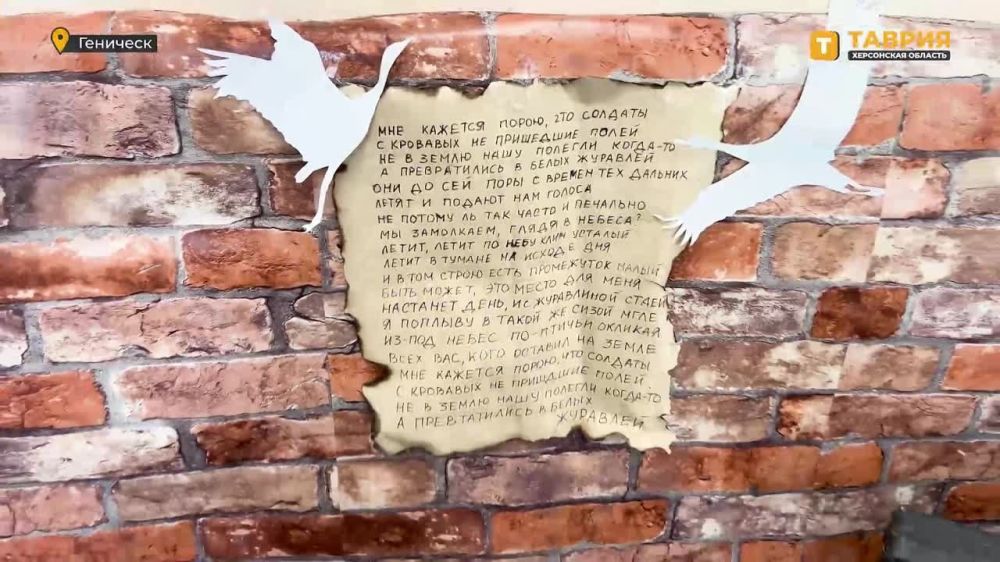 Геническ
ТАВРИЯ
ХЕРСОНСКАЯ ОБЛАСТЬ
МНЕ КАЖЕТСЯ ПОРОЮ, ЧТО СОЛДАТЫ
С КРОВАВЫХ НЕ ПРИШЕДШИЕ ПОЛЕЙ
НЕ В ЗЕМЛЮ НАШУ ПОЛЕГЛИ КОГДА-ТО
А ПРЕВРАТИЛИСЬ В БЕЛЫХ ЖУРАВЛЕЙ
ОНИ ДО СЕЙ ПОРЫ С ВРЕМЕН ТЕХ ДАЛЬНИХ
ЛЕТЯТ И ПОДАЮТ НАМ ГОЛОСА
НЕ ПОТОМУ ЛЬ ТАК ЧАСТО И ПЕЧАЛЬНО
МЫ ЗАМОЛКАЕМ, ГЛЯДЯ В НЕБЕСА?
ЛЕТИТ, ЛЕТИТ ПО НЕБУ КЛИН УСТАЛЫЙ
ЛЕТИТ В ТУМАНЕ НА ИСХОДЕ ДНЯ
И В ТОМ СТРОЮ ЕСТЬ ПРОМЕЖУТОК МАЛЫЙ
БЫТЬ МОЖЕТ, ЭТО МЕСТО ДЛЯ МЕНЯ
НАСТАНЕТ ДЕНЬ, И С ЖУРАВЛИНОЙ СТАЕЙ
Я ПОПЛЫВУ В ТАКОЙ ЖЕ СИЗОЙ МГЛЕ
ИЗ-ПОД НЕБЕС ПО-ПТИЧЬИ ОКЛИКАЯ
ВСЕХ ВАС, КОГО ОСТАВИЛ НА ЗЕМЛЕ
МНЕ КАЖЕТСЯ ПОРОЮ, ЧТО СОЛДАТЫ
С КРОВАВЫХ НЕ ПРИШЕДШИЕ ПОЛЕЙ
НЕ В ЗЕМЛЮ НАШУ ПОЛЕГЛИ КОГДА-ТО
А ПРЕВТАТИЛИСЬ В БЕЛЫХ ЖУРАВЛЕЙ